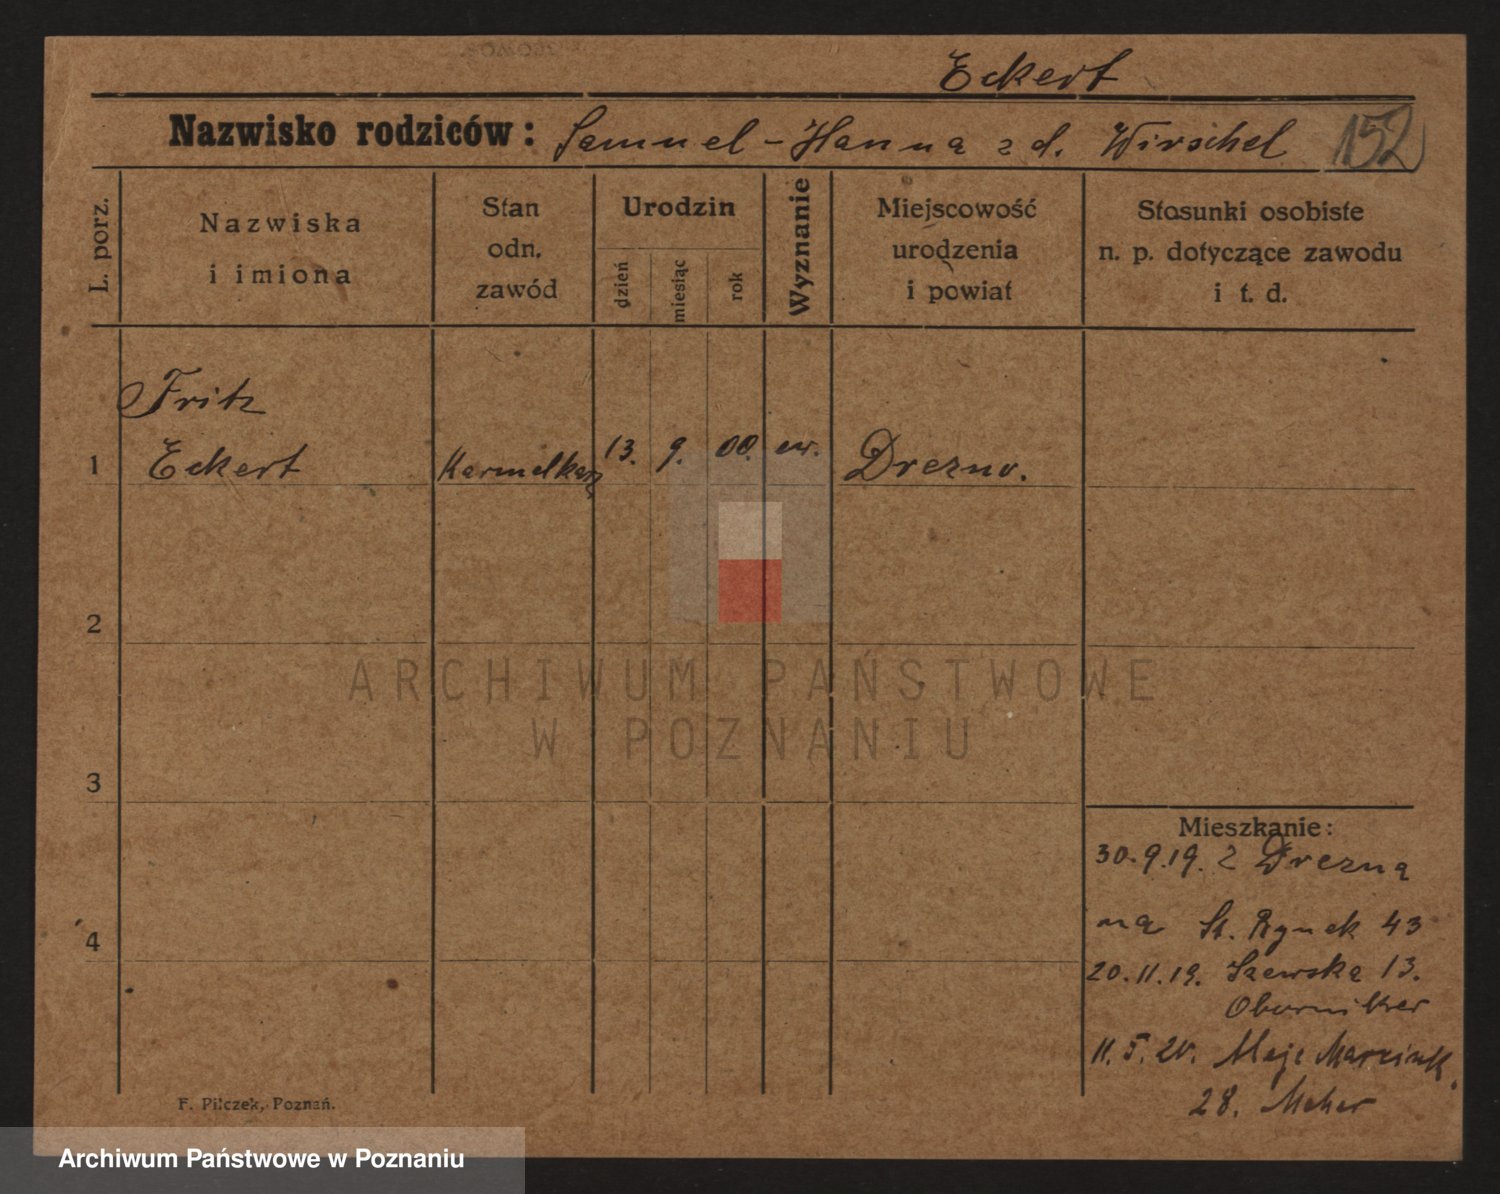 Eckert
Nazwisko rodziców: Samuel - Hanna z d. Wirschel 152
L. porz.
Nazwiska
i imiona
Stan
odn.
zawód
Urodzin
dzień
miesiąc
rok
Wyznanie
Miejscowość
urodzenia
i powiat
Stosunki osobiste
n. p. dotyczące zawodu
i t. d.
Fritz
1 Eckert Karmelkarz 13. 9. 00. ew. Drezno.
2
3
4
ARCHIWUM PAŃSTWOWE
W POZNANIU
Mieszkanie:
30.9.19. z Drezna
na St. Rynek 43
20.11.19. Szewska 13.
Oborniker
11.5.20. Aleje Marcink.
28. Meher
F. Pilczek, Poznań.
Archiwum Państwowe w Poznaniu